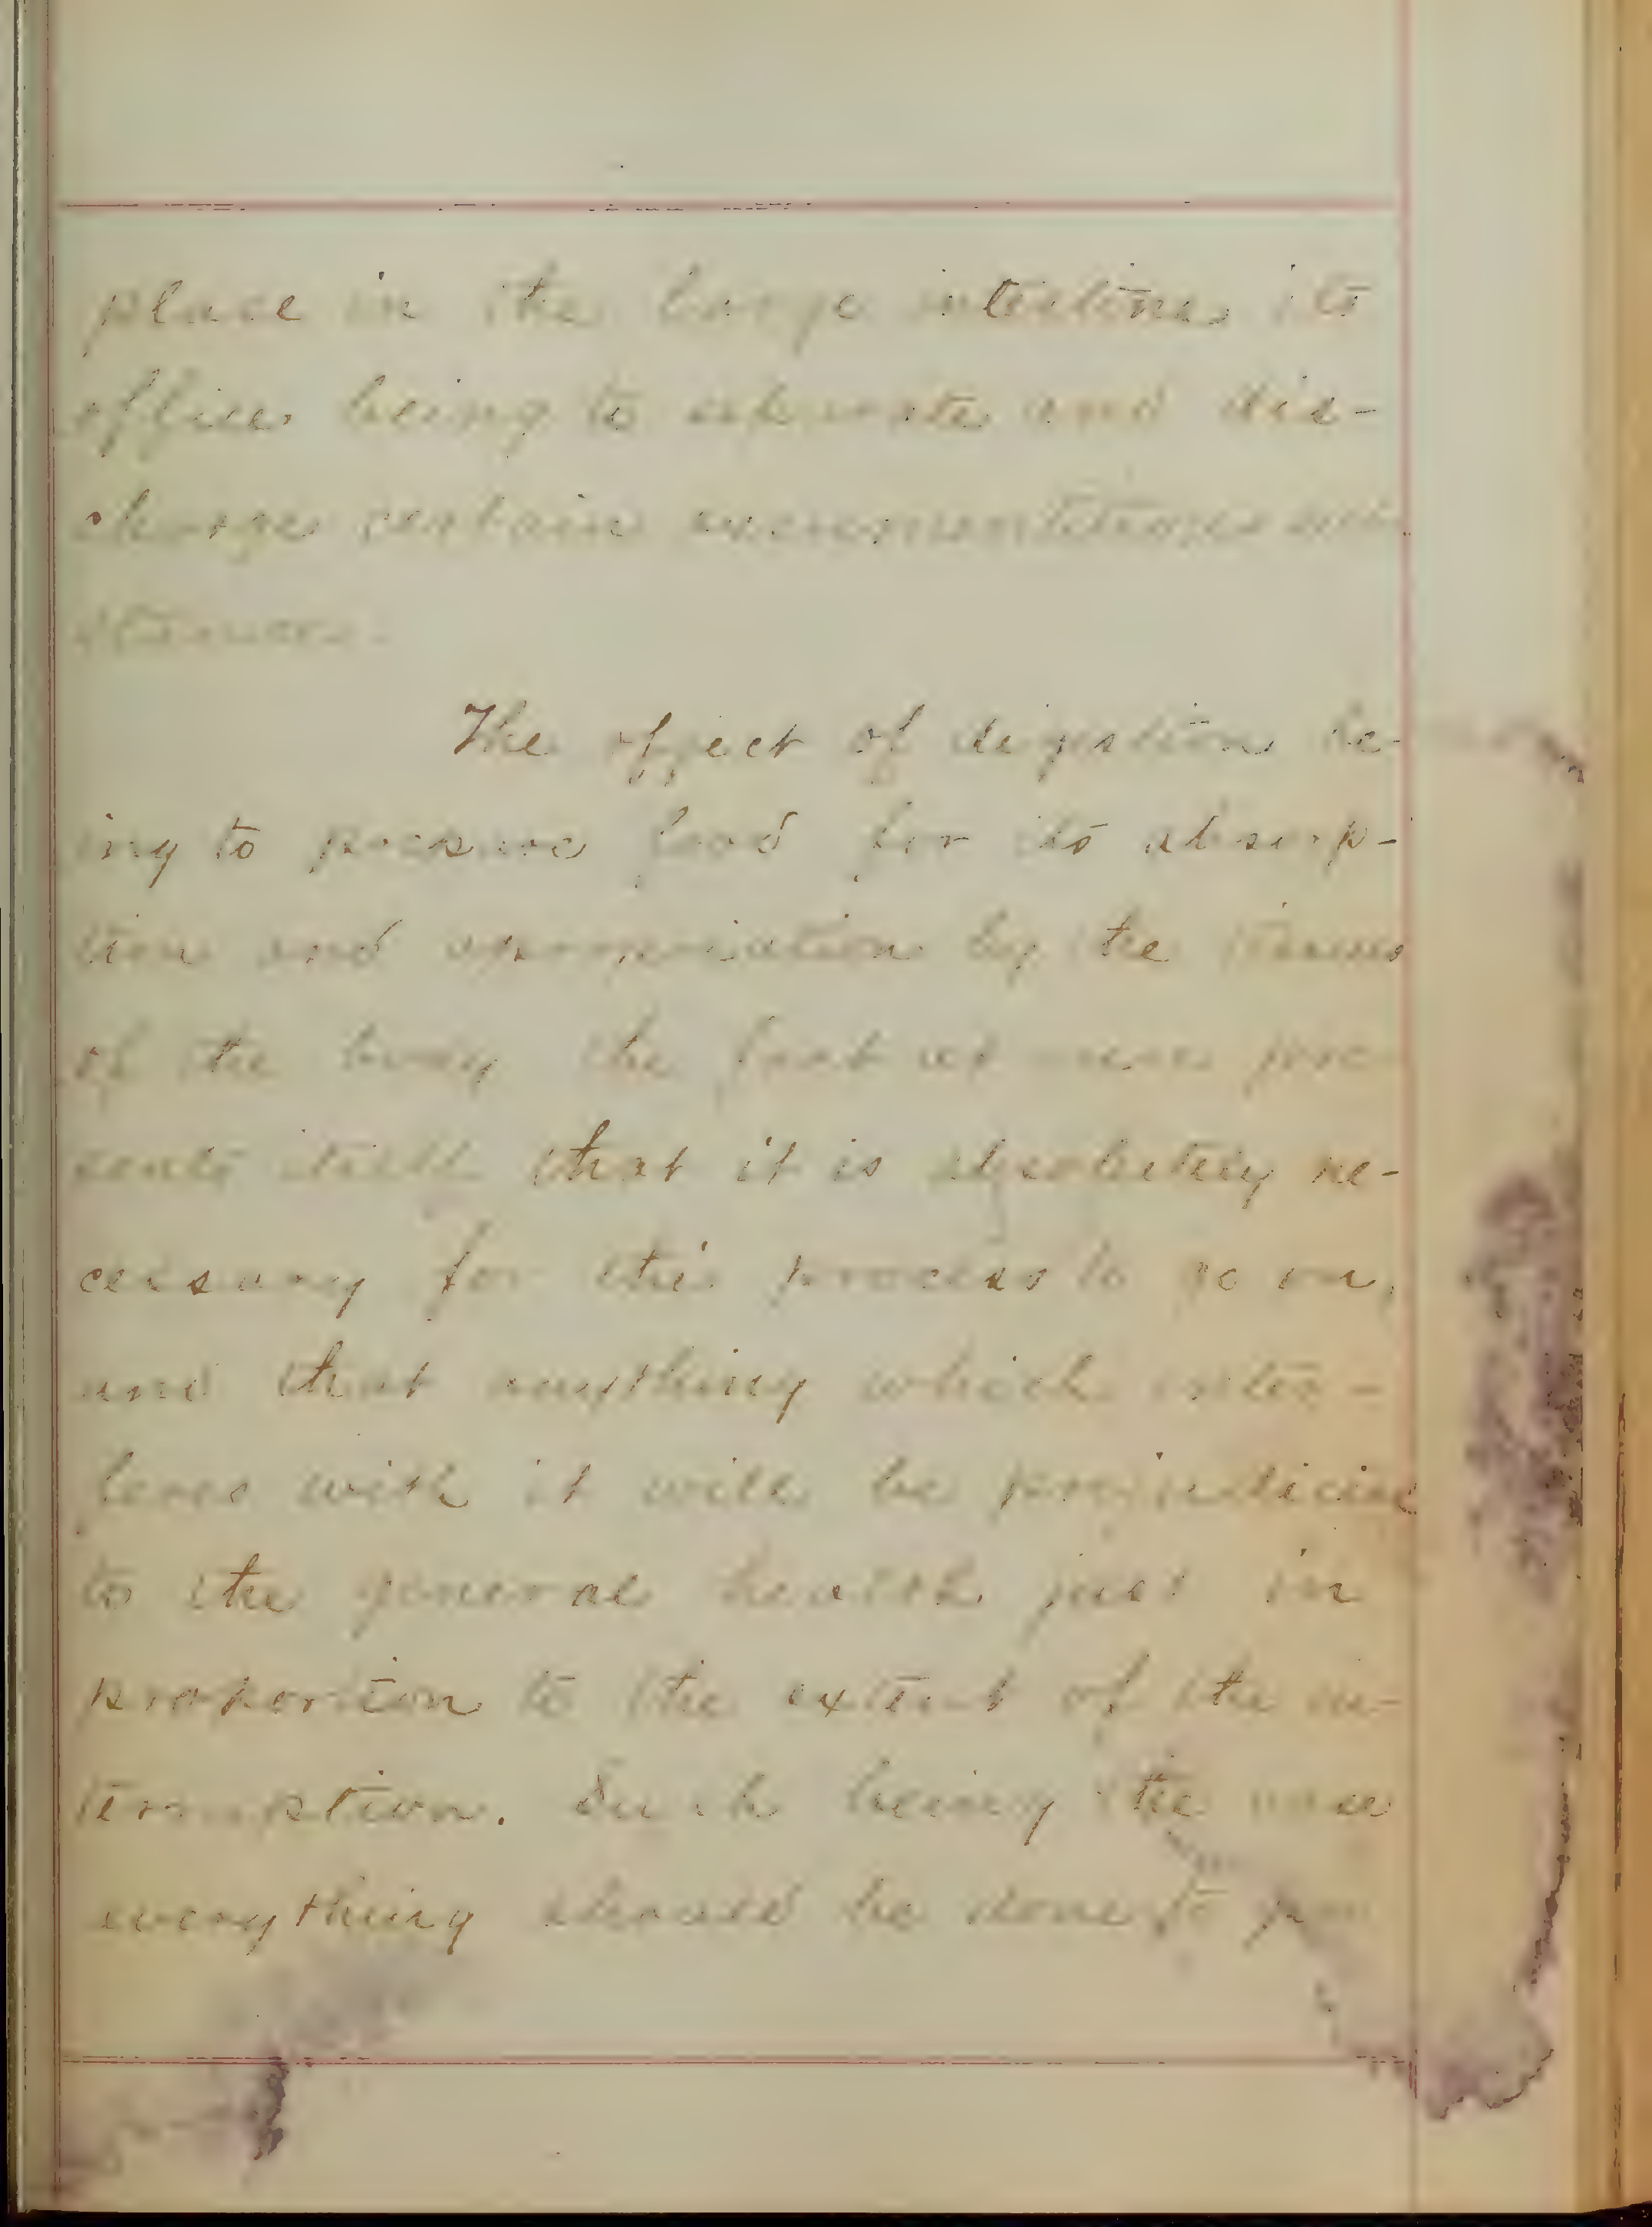 place in the large intestine, its
office being to separate and dis-
charge certain excrementitious sub-
stances.
The effect of digestion be-
ing to prepare food for its absorp-
tion and appropriation by the tissues
of the body the fact at once pre-
sents itself that it is absolutely ne-
cessary for this process to go on,
and that anything which inter-
feres with it will be prejudicial
to the general health just in
proportion to the extent of the in-
terruption. Such being the case
everything should be done to